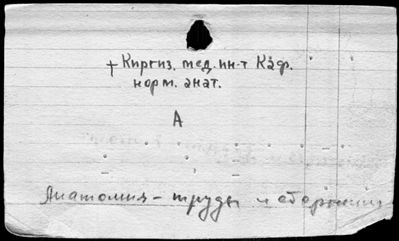 + Киргиз. мед. ин-т Каф.
норм. анат.
А
" " " " " –
" – " " –
Анатомия – труды и сборники